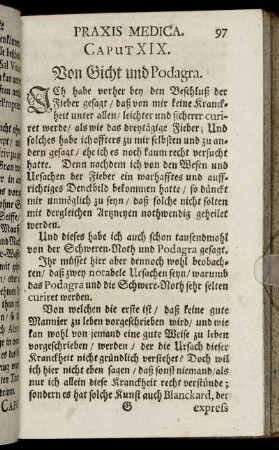 PRAXIS MEDICA. 97
CAPUT XIX.
Von Gicht und Podagra.
ICh habe vorher bey den Beschluß der
Fieber gesagt / daß von mir keine Kranck-
heit unter allen / leichter und sicherer curi-
ret werde / als wie das dreytägige Fieber; Und
solches habe ich offters zu mir selbsten und zu an-
dern gesagt / ehe ich es noch kaum recht versucht
hatte. Denn nachdem ich von den Wesen und
Ursachen der Fieber ein warhafftes und auff-
richtiges Denckbild bekommen hatte / so dünckt
mir unmöglich zu seyn / daß solche nicht solten
mit dergleichen Artzneyen nothwendig geheilet
werden.
Und dieses habe ich auch schon tausendmahl
von der Schweren-Noth und Podagra gesagt.
Ihr müsset hier aber dennoch wohl beobach-
ten / daß zwey notabele Ursachen seyn / warumb
das Podagra und die Schwere-Noth sehr selten
curiret werden.
Von welchen die erste ist / daß keine gute
Mannier zu leben vorgeschrieben wird / und wie
kan wohl von jemand eine gute Weise zu leben
vorgeschrieben / werden / der die Ursach dieser
Kranckheit nicht gründlich verstehet / Doch wil
ich hier nicht eben sagen / daß sonst niemand / als
nur ich allein diese Kranckheit recht verstünde;
sondern es hat solche Kunst auch Blanckard, der
G expreſs